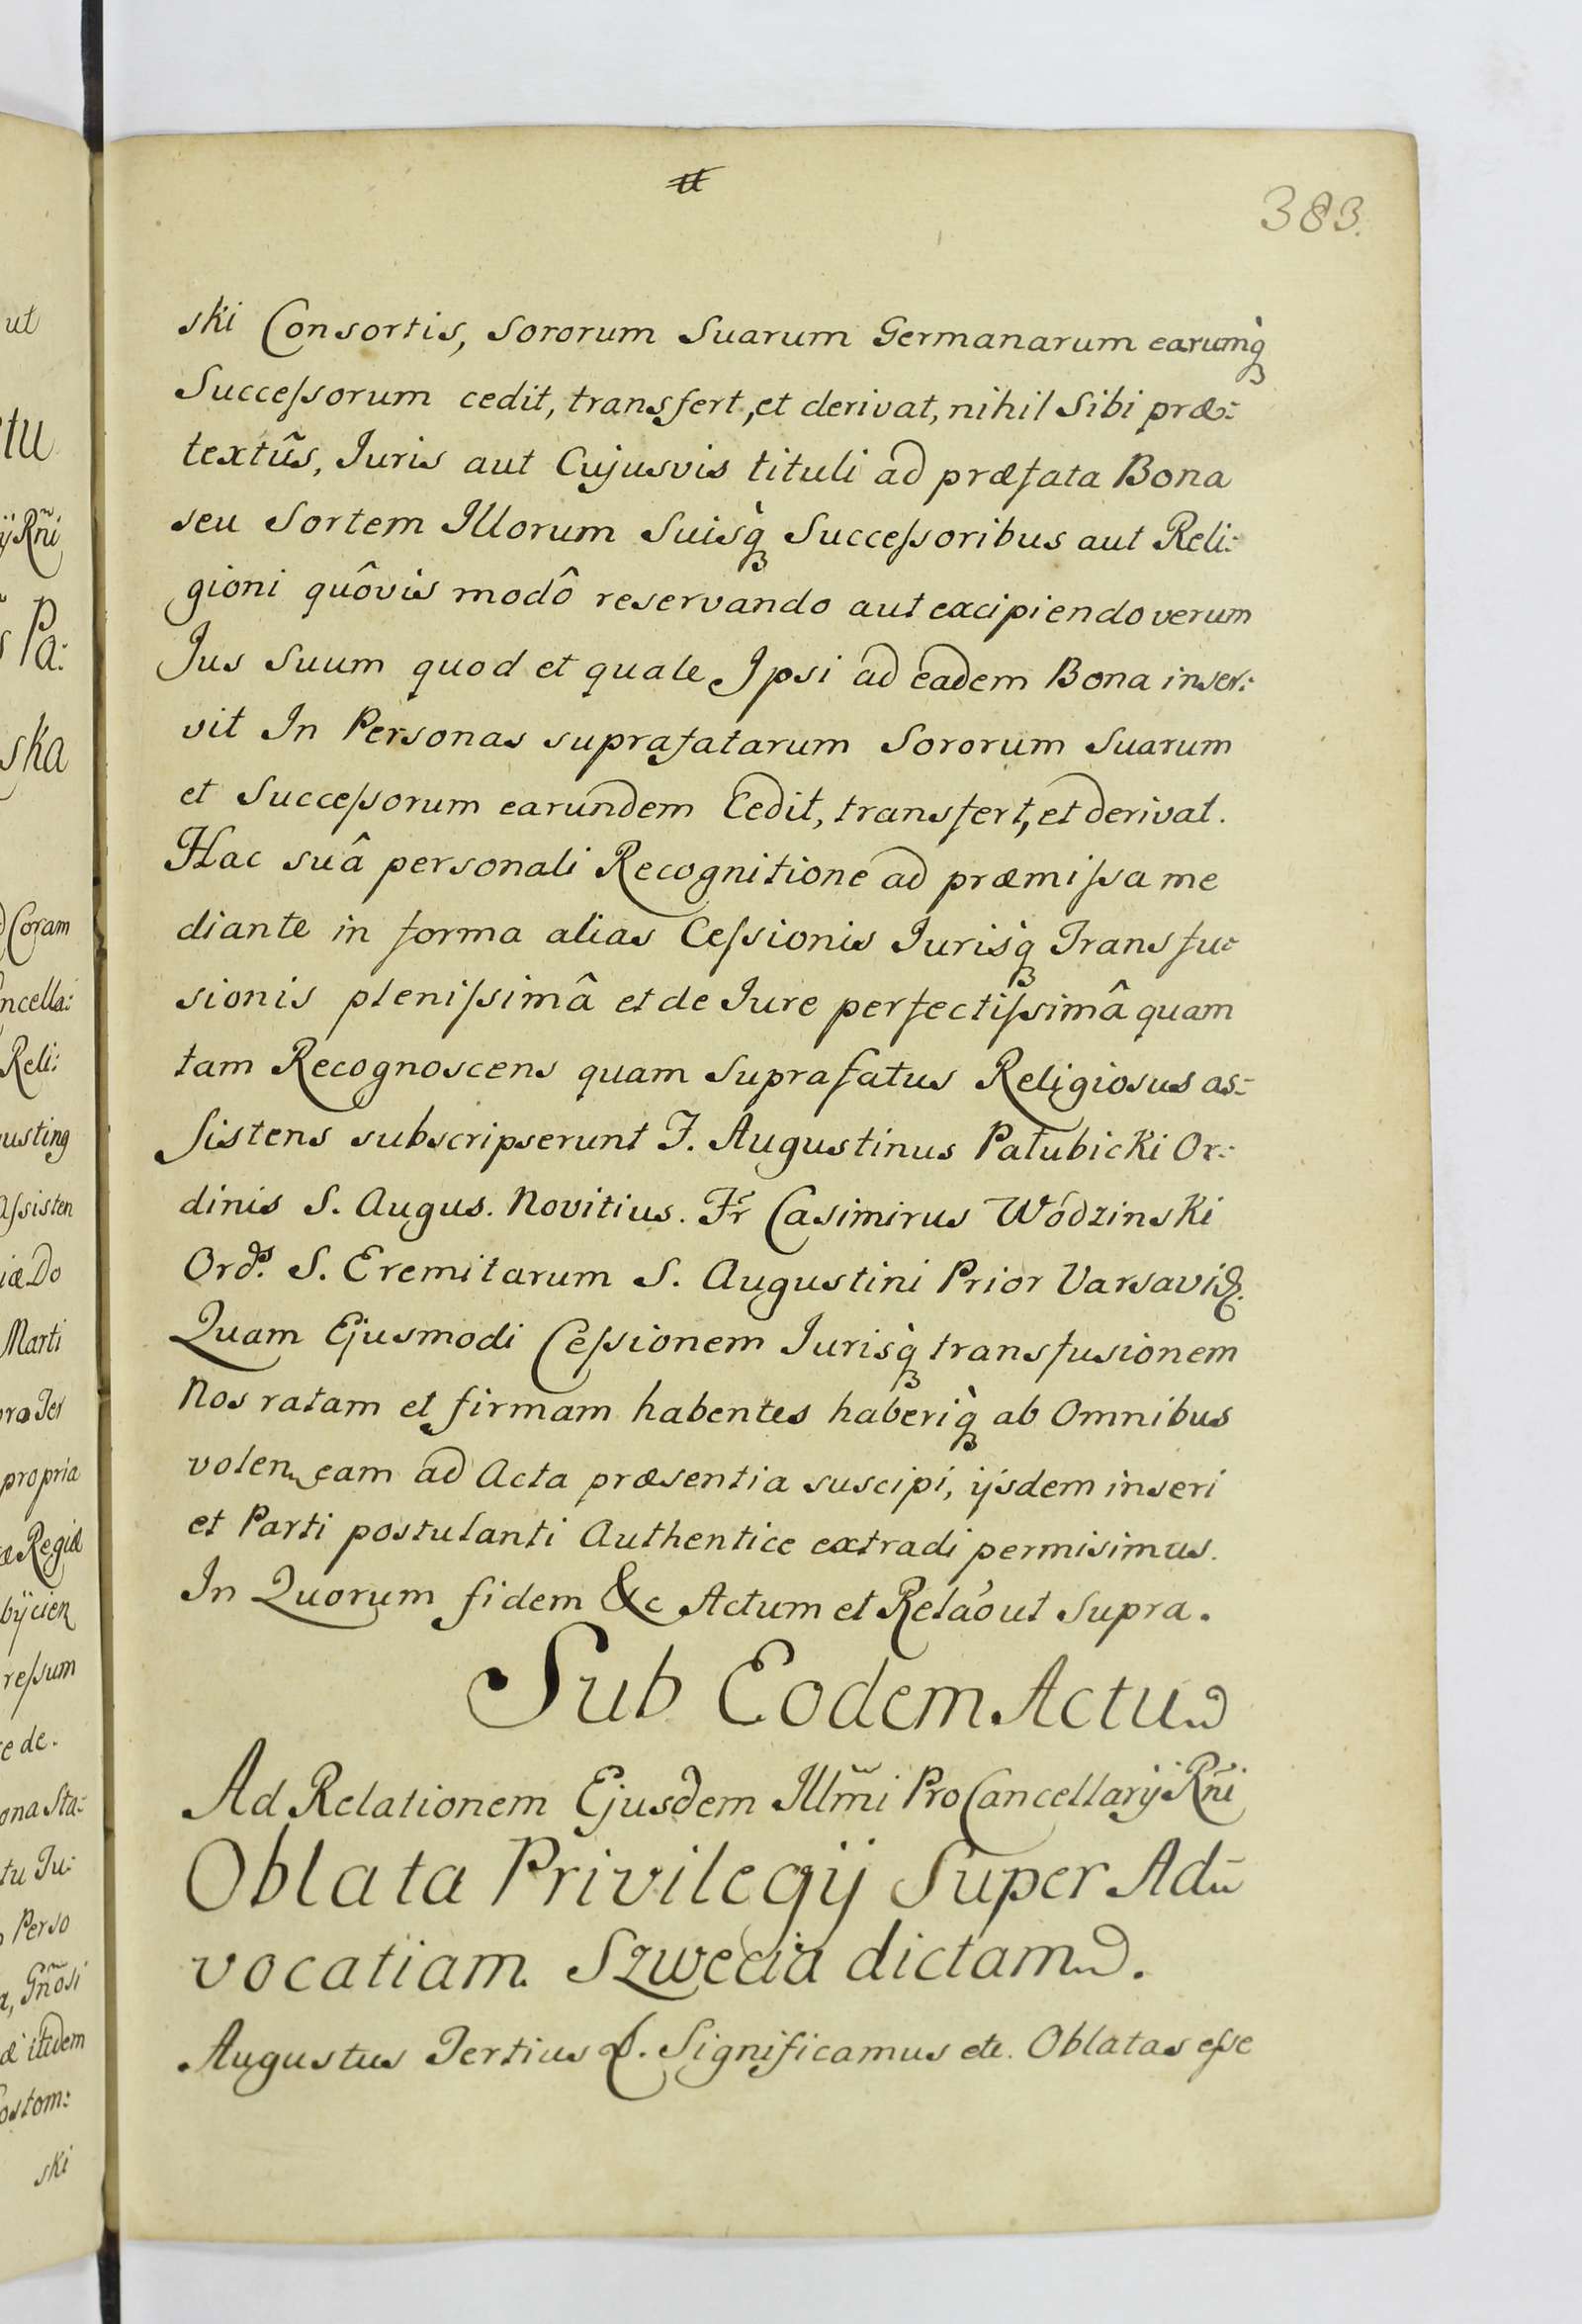 383.
ski Consortis, Sororum Suarum Germanarum earumq̀
Succeſsorum cedit, transfert, et derivat, nihil Sibi præ:
textũs, Iuris aut Cujusvis tituli ad præfata Bona
seu Sortem Illorum Suisq̀ Succeſsoribus aut Reli:
gioni quôvis modô reservando aut excipiendo verum
Jus Suum quod et quale Ipsi ad eadem Bona inser:
vit In Personas suprafatarum Sororum Suarum
et Succeſsorum earundem Cedit, transfert, et derivat.
Hac suâ personali Recognitione ad præmiſsa me
diante in forma alias Ceſsionis Iurisq̀ Transfu:
sionis pleniſsimâ et de Iure perfectiſsimâ quam
tam Recognoscens quam Suprafatus Religiosus as:
sistens subscripserunt F. Augustinus Pałubicki Or:
dinis S. Augus. Novitius. Fr Casimirus Wodzinski
Ordis. S. Eremitarum S. Augustini Prior Varsavię.
Quam Ejusmodi Ceſsionem Iurisq̀ transfusionem
Nos ratam et firmam habentes haberiq̀ ab Omnibus
volen eam ad Acta præsentia suscipi, ijsdem inseri
et Parti postulanti Authentice extradi permisimus.
In Quorum fidem &c Actum et Relão ut Supra.
Sub Eodem Actu
Ad Relationem Ejusdem Illm̃i ProCancellarij Rñi
Oblata Privilegij Super Ad-
vocatiam Szwecia dictam.
Augustus Tertius &. Significamus etc. Oblatas eſse
ut
tu
ij Rñi
Pa:
ska
Coram
ncella:
Reli:
usting
aſsisten
iæ Do
Marti
pro Ter
propria
æ Regiæ
bÿcien
reſsum
e de.
ona Sta:
tu Ju:
Perso
a, Gñosi
æ itidem
ostom:
ski